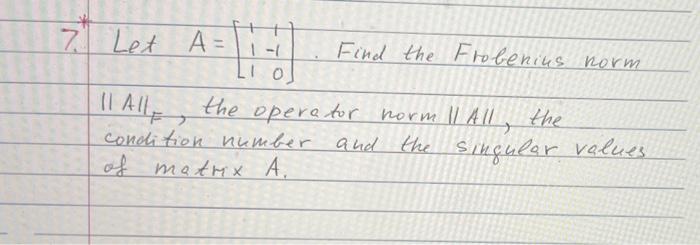 7.* Let A = [1 1; 1 -1; 1 0]. Find the Frobenius norm
||A||_F, the operator norm ||A||, the
condition number and the singular values
of matrix A.